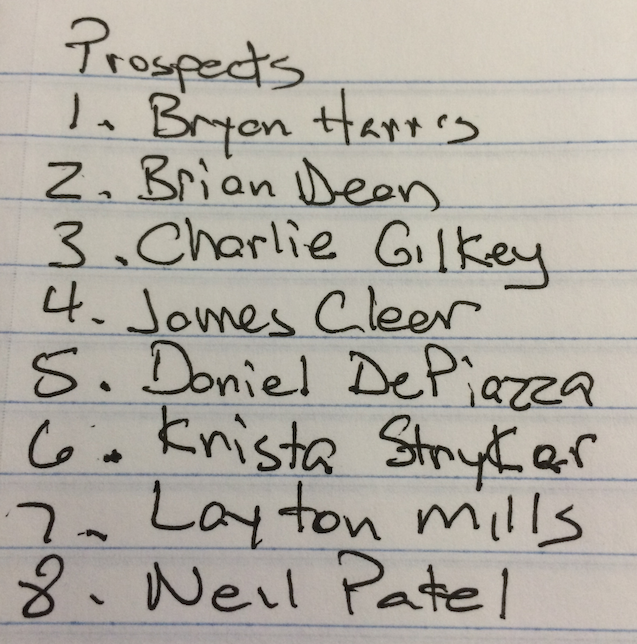 Prospects
1. Bryan Harris
2. Brian Dean
3. Charlie Gilkey
4. James Clear
5. Daniel DePiazza
6. Krista Stryker
7. Layton Mills
8. Neil Patel